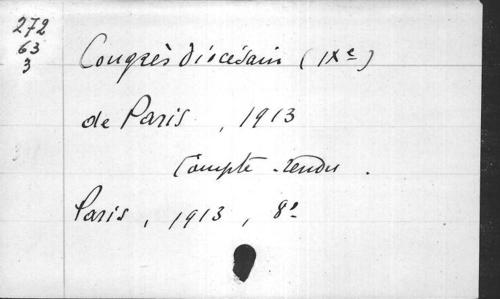 272
63
3
Congrès diocésain (IXe)
de Paris, 1913
Compte-rendu.
Paris, 1913, 8°